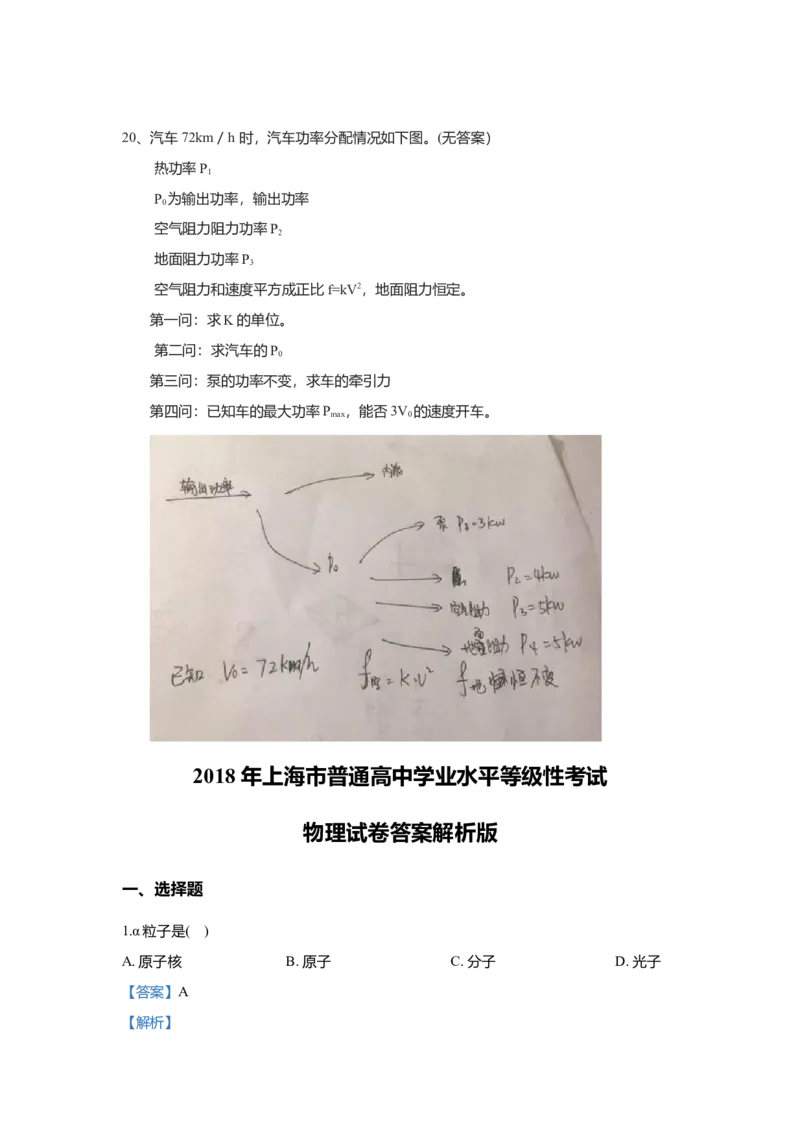 20、汽车 72km／h 时，汽车功率分配情况如下图。(无答案）
热功率 P₁
P₀ 为输出功率，输出功率
空气阻力阻力功率 P₂
地面阻力功率 P₃
空气阻力和速度平方成正比 f=kV²，地面阻力恒定。
第一问：求 K 的单位。
第二问：求汽车的 P₀
第三问：泵的功率不变，求车的牵引力
第四问：已知车的最大功率 Pmax，能否 3V₀ 的速度开车。
内能
输出功率
泵 P₁=3kw
P₀
P₂=4kw
空气阻力 P₃=5kw
地面阻力 P₄=5kw
已知 V₀=72km/h f空=K·V² f地 恒不变
2018 年上海市普通高中学业水平等级性考试
物理试卷答案解析版
一、选择题
1.α 粒子是( )
A. 原子核 B. 原子 C. 分子 D. 光子
【答案】A
【解析】